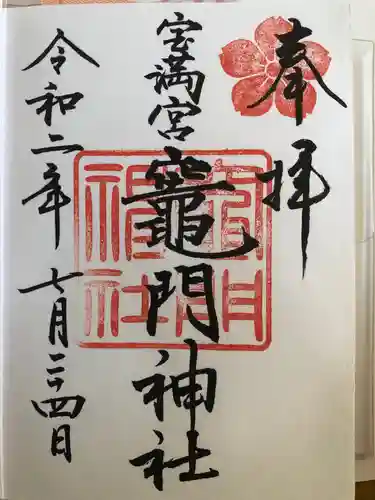 奉拝
宝満宮
竈門神社
令和二年七月二十四日
竈門神社